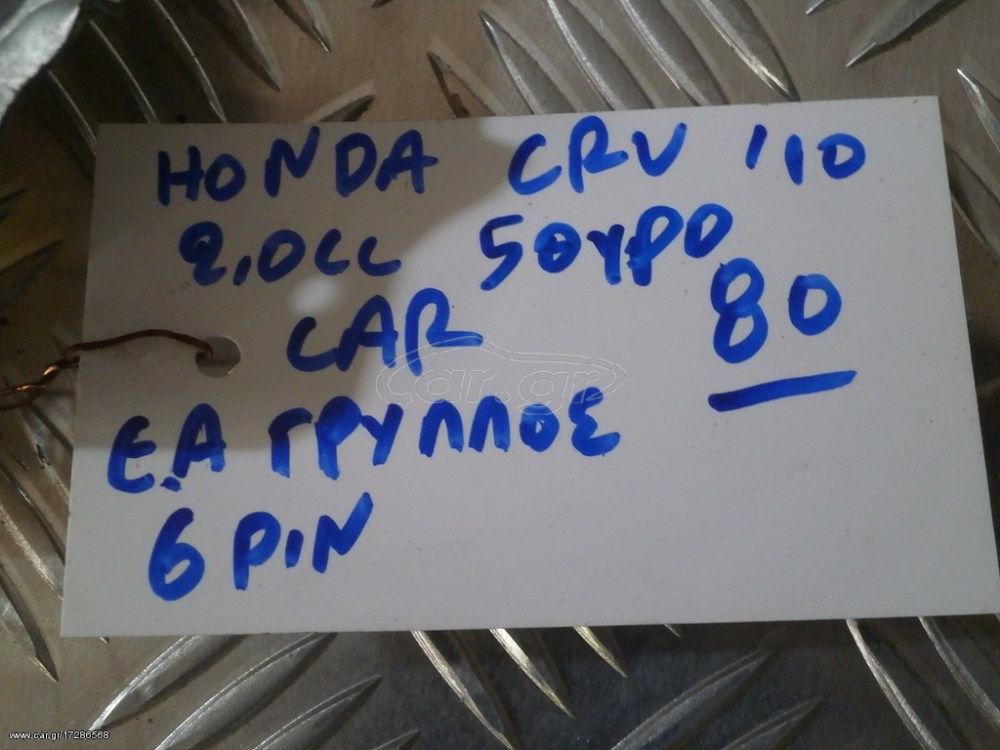 HONDA CRV '10
2,0CC 5ΘΥΡΟ
80
CAR
Ε.Α ΓΡΥΛΛΟΣ
6 PIN
car.gr
www.car.gr/17286568